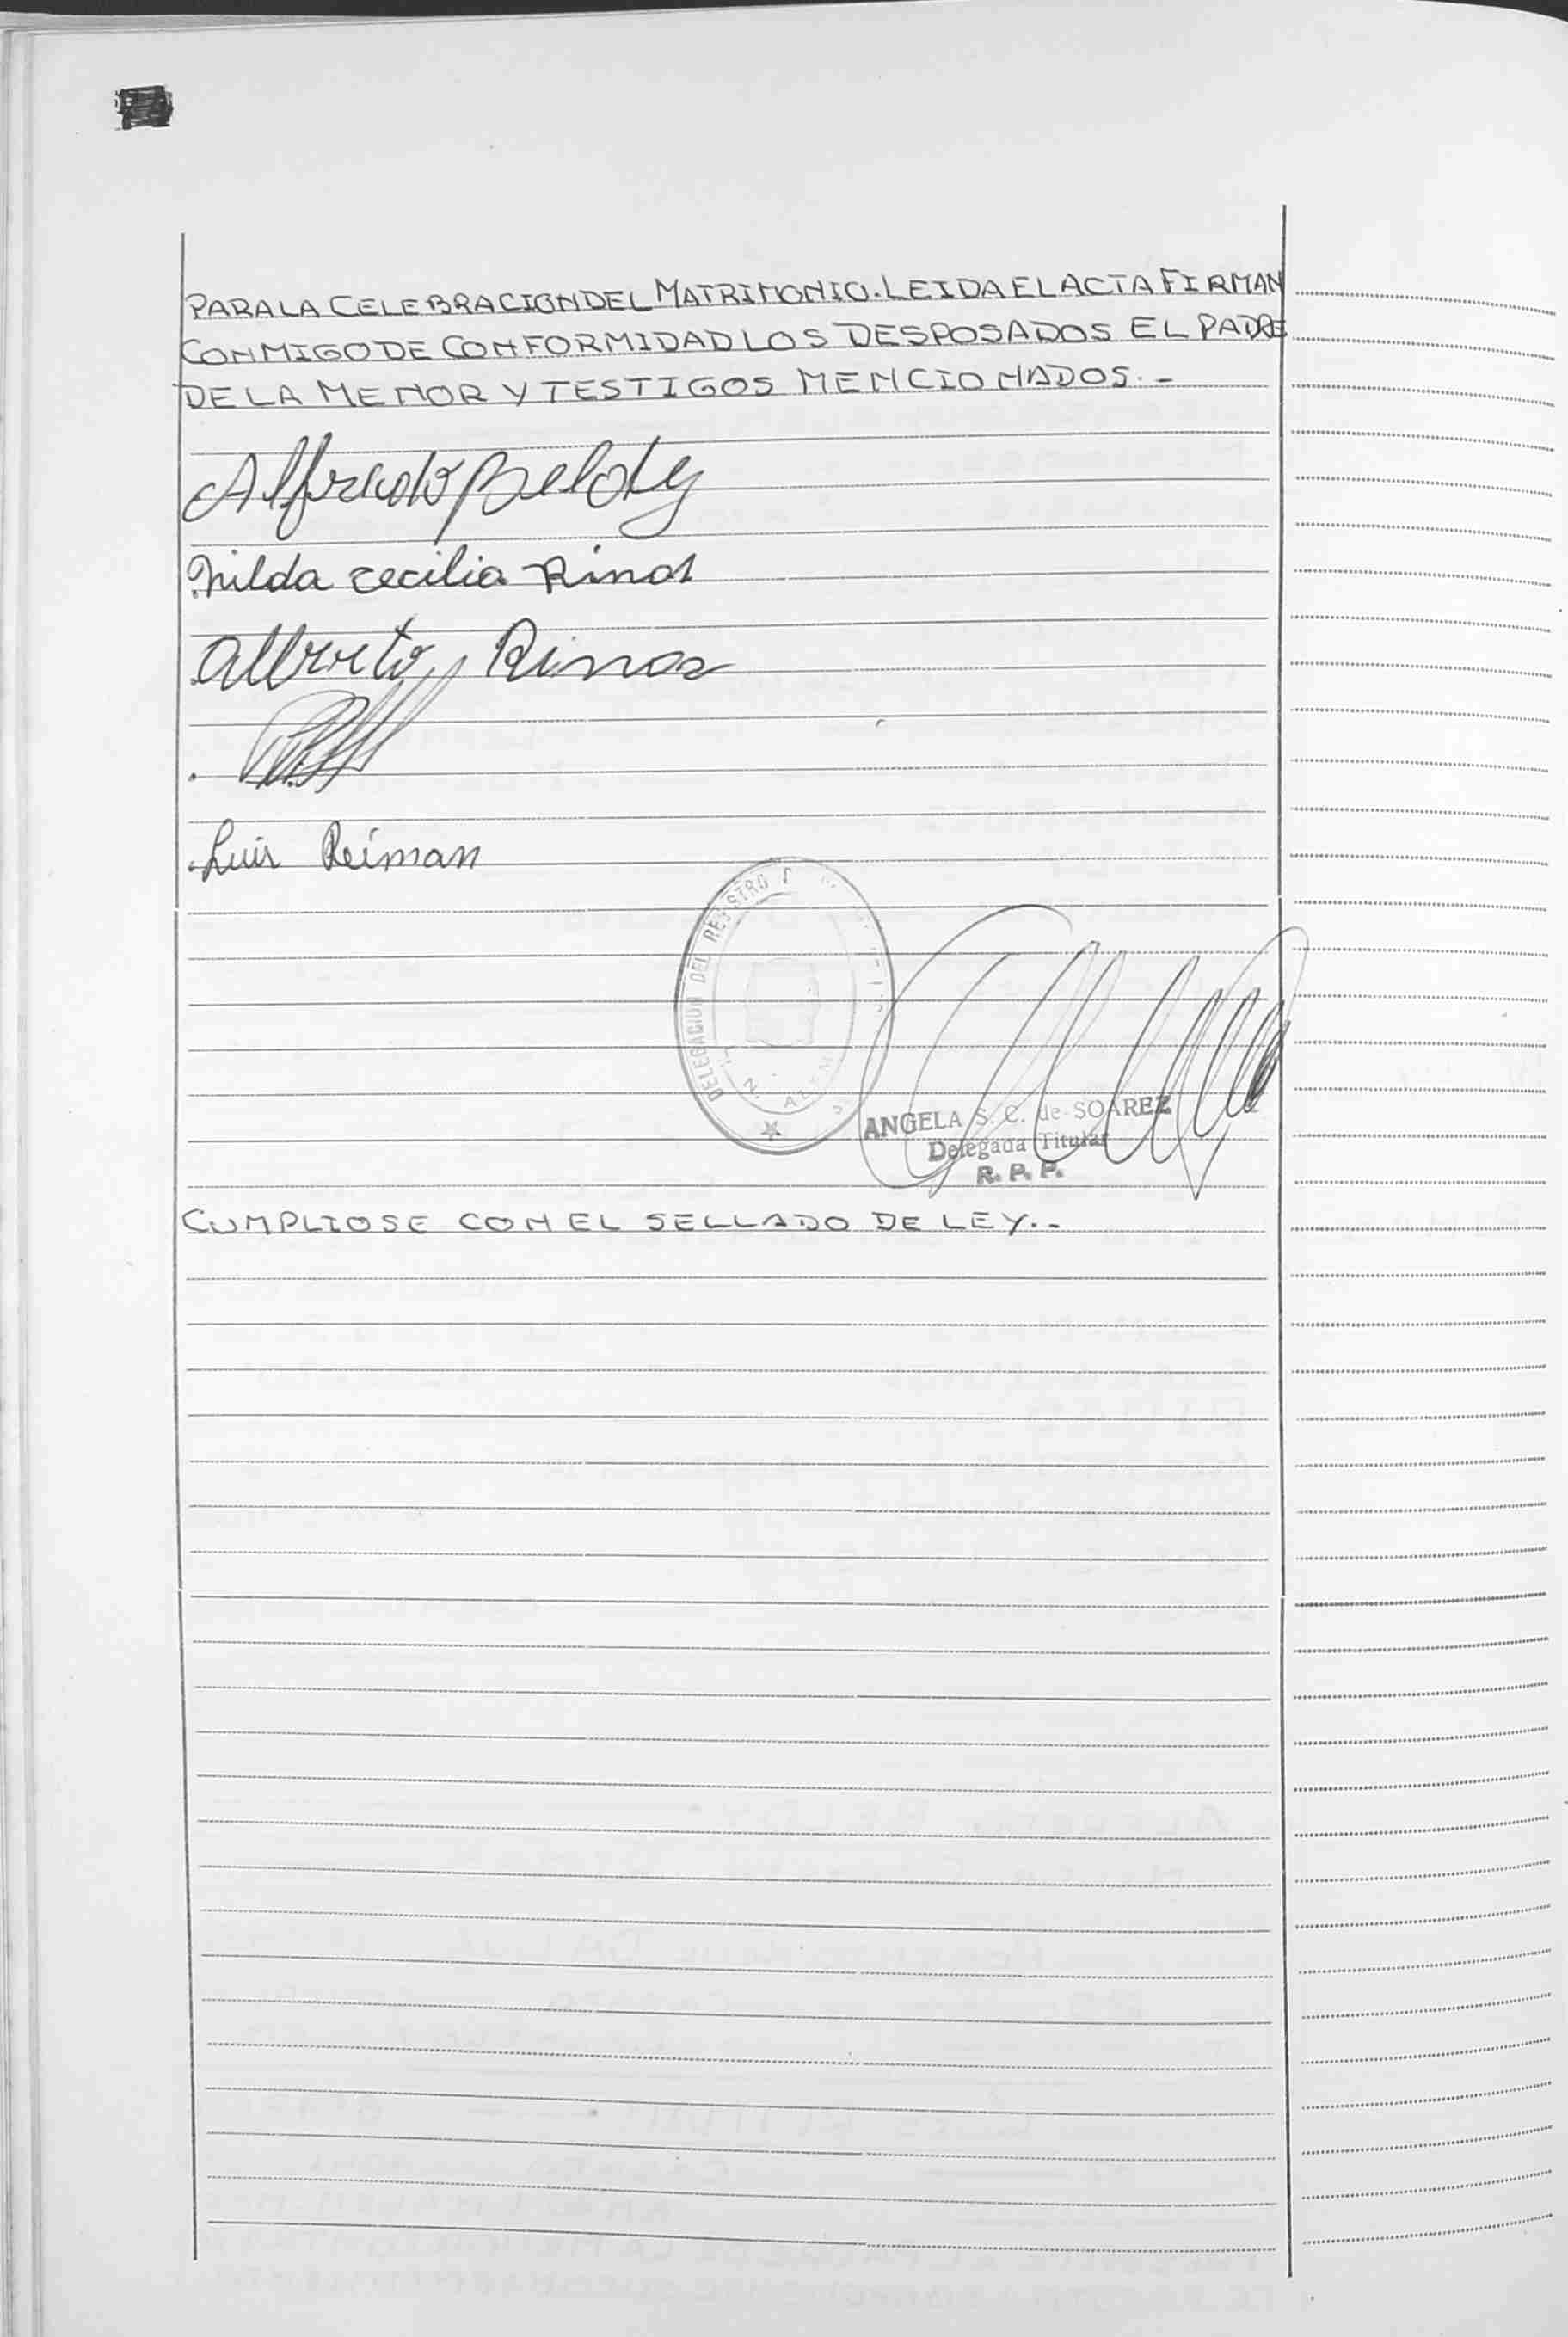 PARA LA CELEBRACION DEL MATRIMONIO. LEIDA EL ACTA FIRMAN
CONMIGO DE CONFORMIDAD LOS DESPOSADOS EL PADRE
DE LA MENOR Y TESTIGOS MENCIONADOS.-
Alfredo Beloty
Nilda cecilia Rinas
Alberto Rinas
Luis Reiman
DELEGACION DEL REGISTRO
ANGELA S. C. de SOAREZ
Delegada Titular
R. P. P.
CUMPLIOSE CON EL SELLADO DE LEY.-